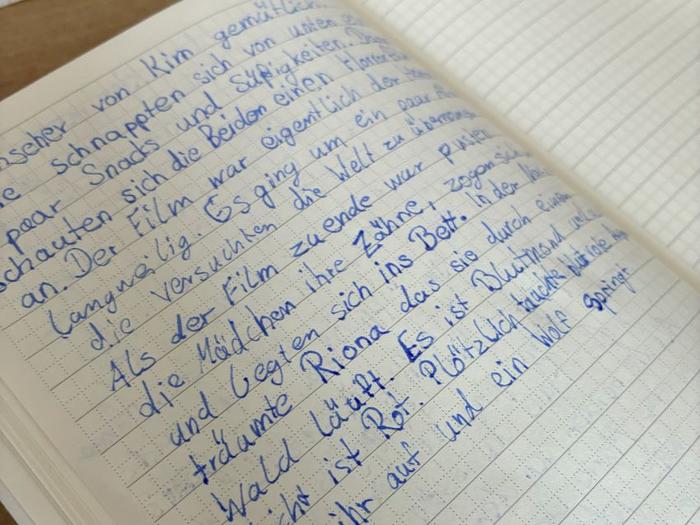 von Kim gemütlich
schnappten sich von unten
paar Snacks und Süßigkeiten.
schauten sich die Beiden einen Horror
an. Der Film war eigentlich der
langweilig. Es ging um ein paar
die versuchten die Welt zu
Als der Film zuende war putzten
die Mädchen ihre Zähne, zogen sich
und legten sich ins Bett. In der
träumte Riona das sie durch einen
Wald läuft. Es ist Blutmond
ist Rot. Plötzlich tauchte
ihr auf und ein Wolf springt